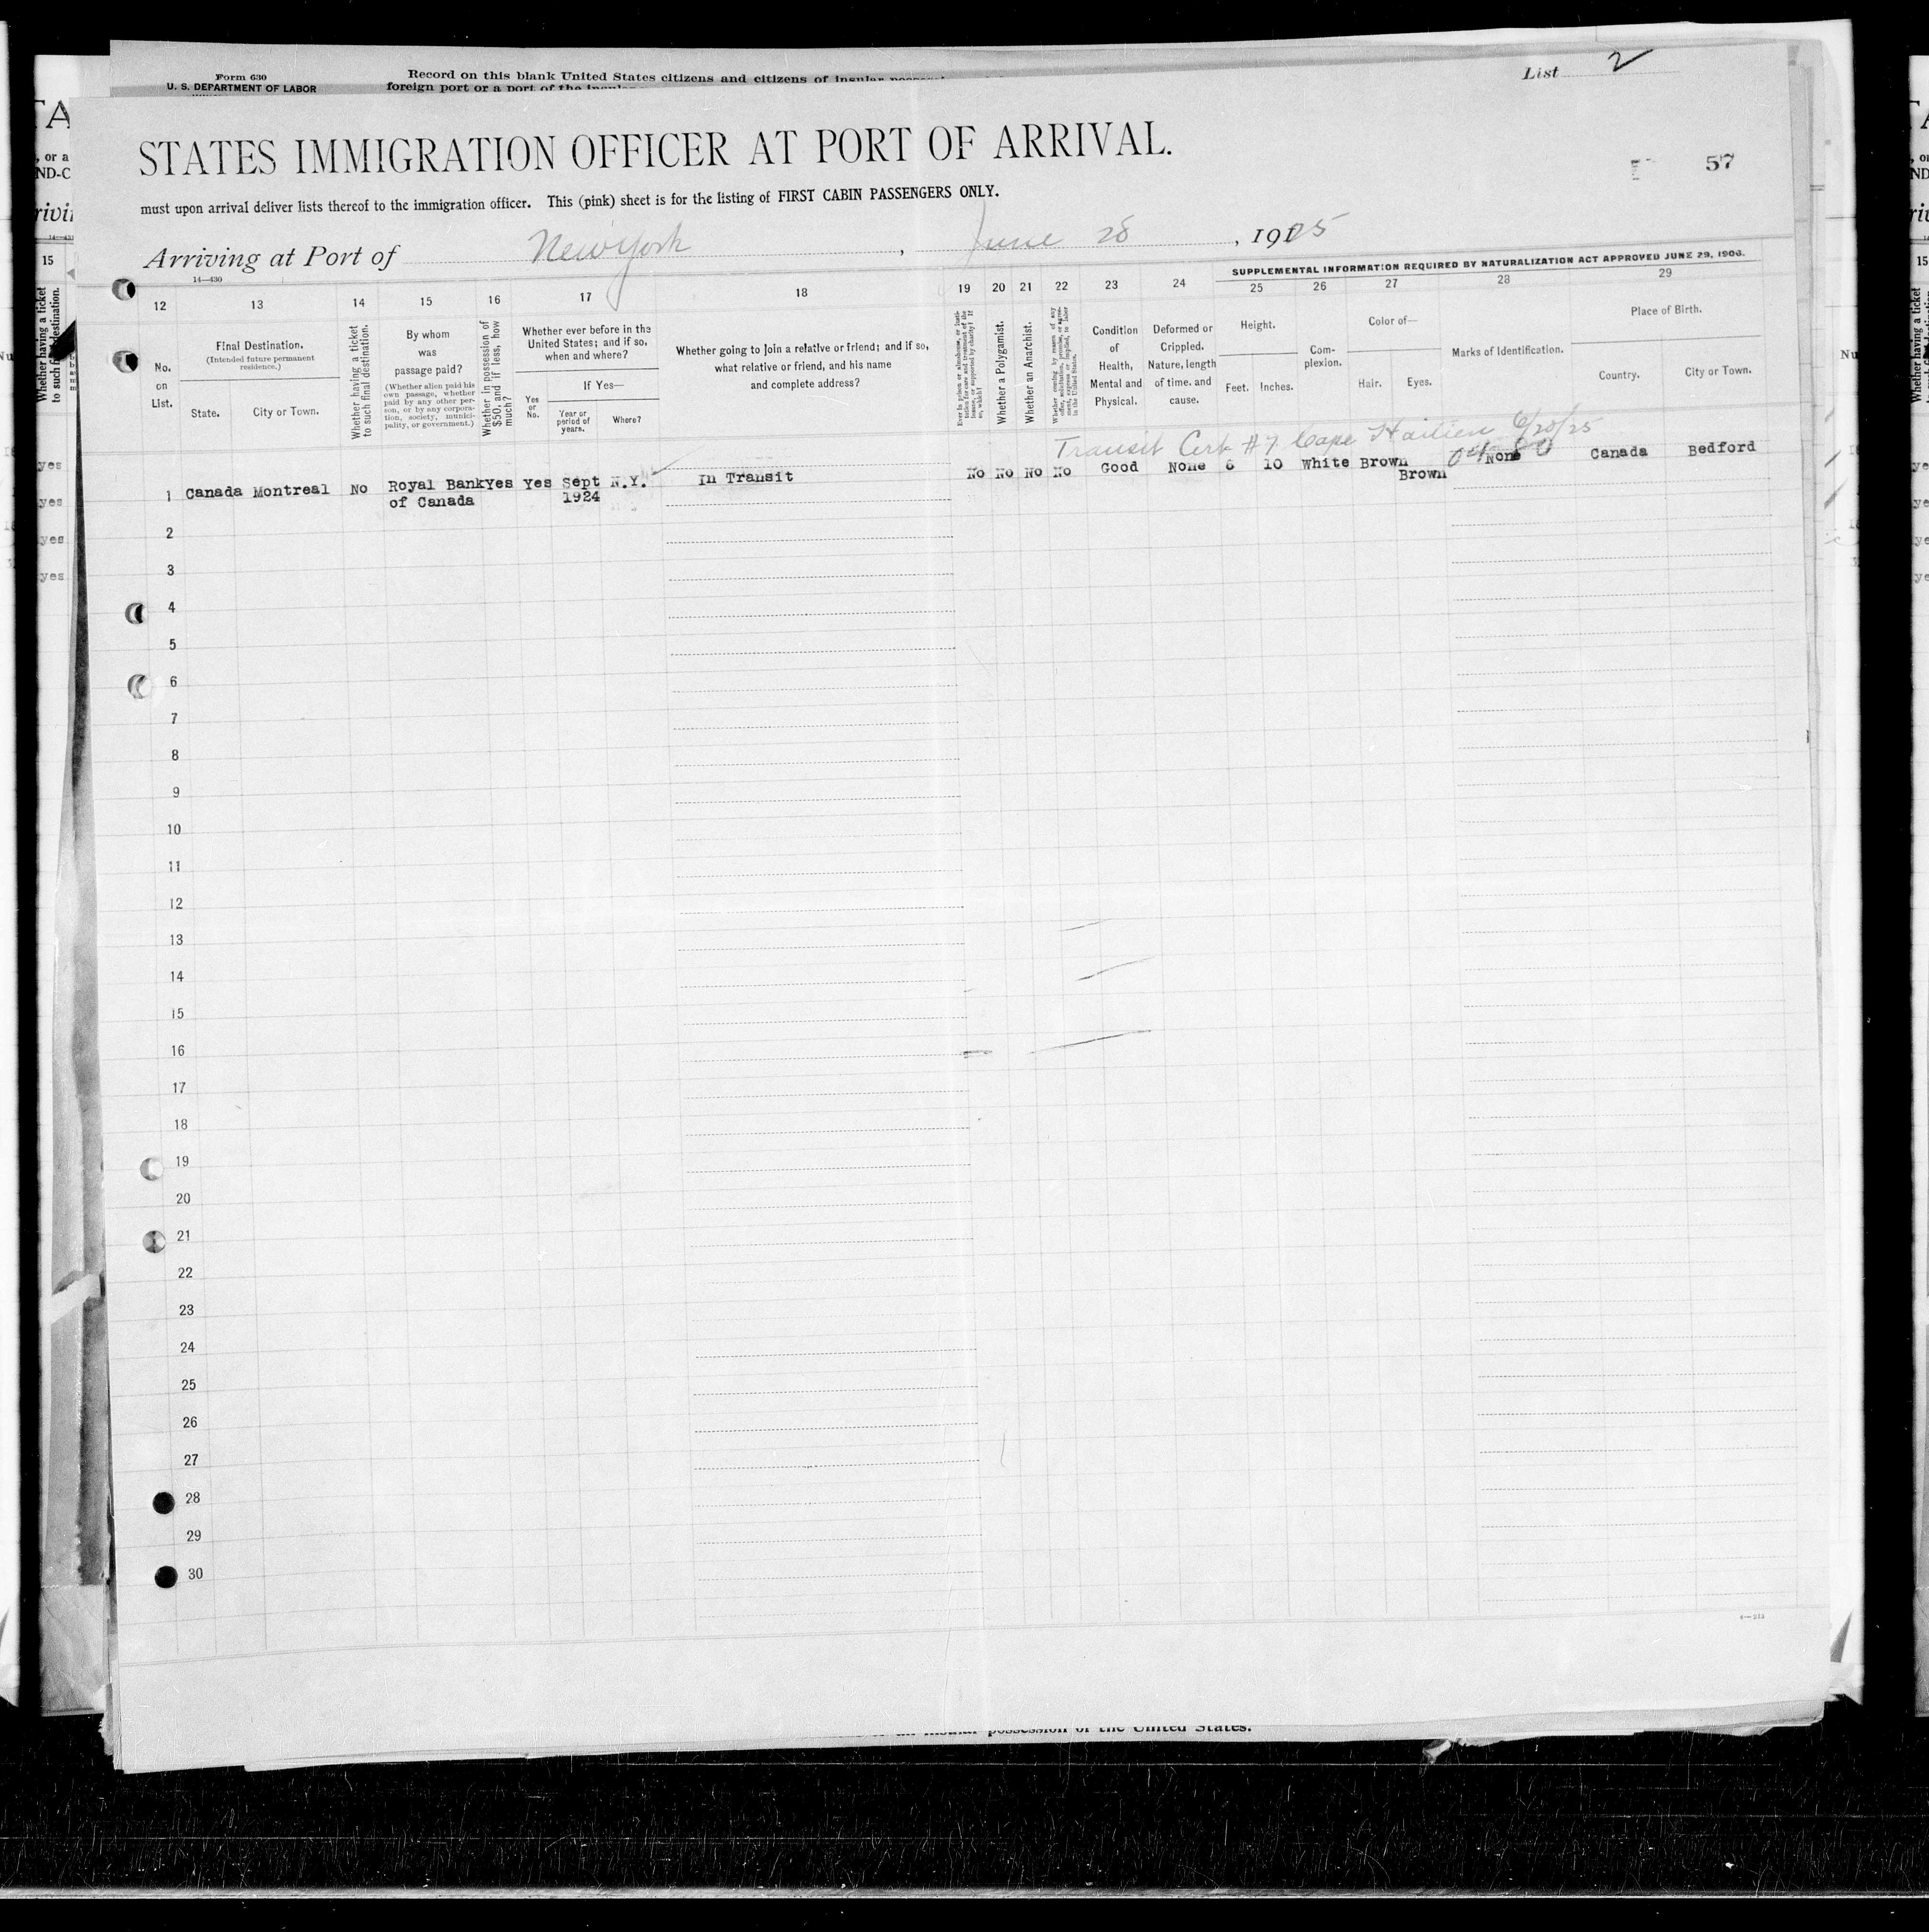 Form 630
U. S. DEPARTMENT OF LABOR
Record on this blank United States citizens and citizens of insular
foreign port or a port of the
List 2
STATES IMMIGRATION OFFICER AT PORT OF ARRIVAL.
57
must upon arrival deliver lists thereof to the immigration officer. This (pink) sheet is for the listing of FIRST CABIN PASSENGERS ONLY.
Arriving at Port of New York, June 28, 1925
14—430
SUPPLEMENTAL INFORMATION REQUIRED BY NATURALIZATION ACT APPROVED JUNE 29, 1906.
12 13 14 15 16 17 18 19 20 21 22 23 24 25 26 27 28 29
No. on List.
Final Destination.
(Intended future permanent residence.)
State. City or Town.
Whether having a ticket to such final destination.
By whom was passage paid?
(Whether alien paid his own passage, whether paid by any other person, or by any corporation, society, municipality, or government.)
Whether in possession of $50, and if less, how much?
Whether ever before in the United States; and if so, when and where?
If Yes—
Yes or No.
Year or period of years.
Where?
Whether going to join a relative or friend; and if so, what relative or friend, and his name and complete address?
Whether a Polygamist.
Whether an Anarchist.
Condition of Health, Mental and Physical.
Deformed or Crippled. Nature, length of time, and cause.
Height.
Feet. Inches.
Complexion.
Color of—
Hair. Eyes.
Marks of Identification.
Place of Birth.
Country. City or Town.
Transit Cert #7 Cape Haitien 6/20/25
1 Canada Montreal No Royal Bank Yes Yes Sept N.Y. In Transit No No No No Good None 6 10 White Brown None Canada Bedford
of Canada 1924 Brown
2
3
4
5
6
7
8
9
10
11
12
13
14
15
16
17
18
19
20
21
22
23
24
25
26
27
28
29
30
possession of the United States.